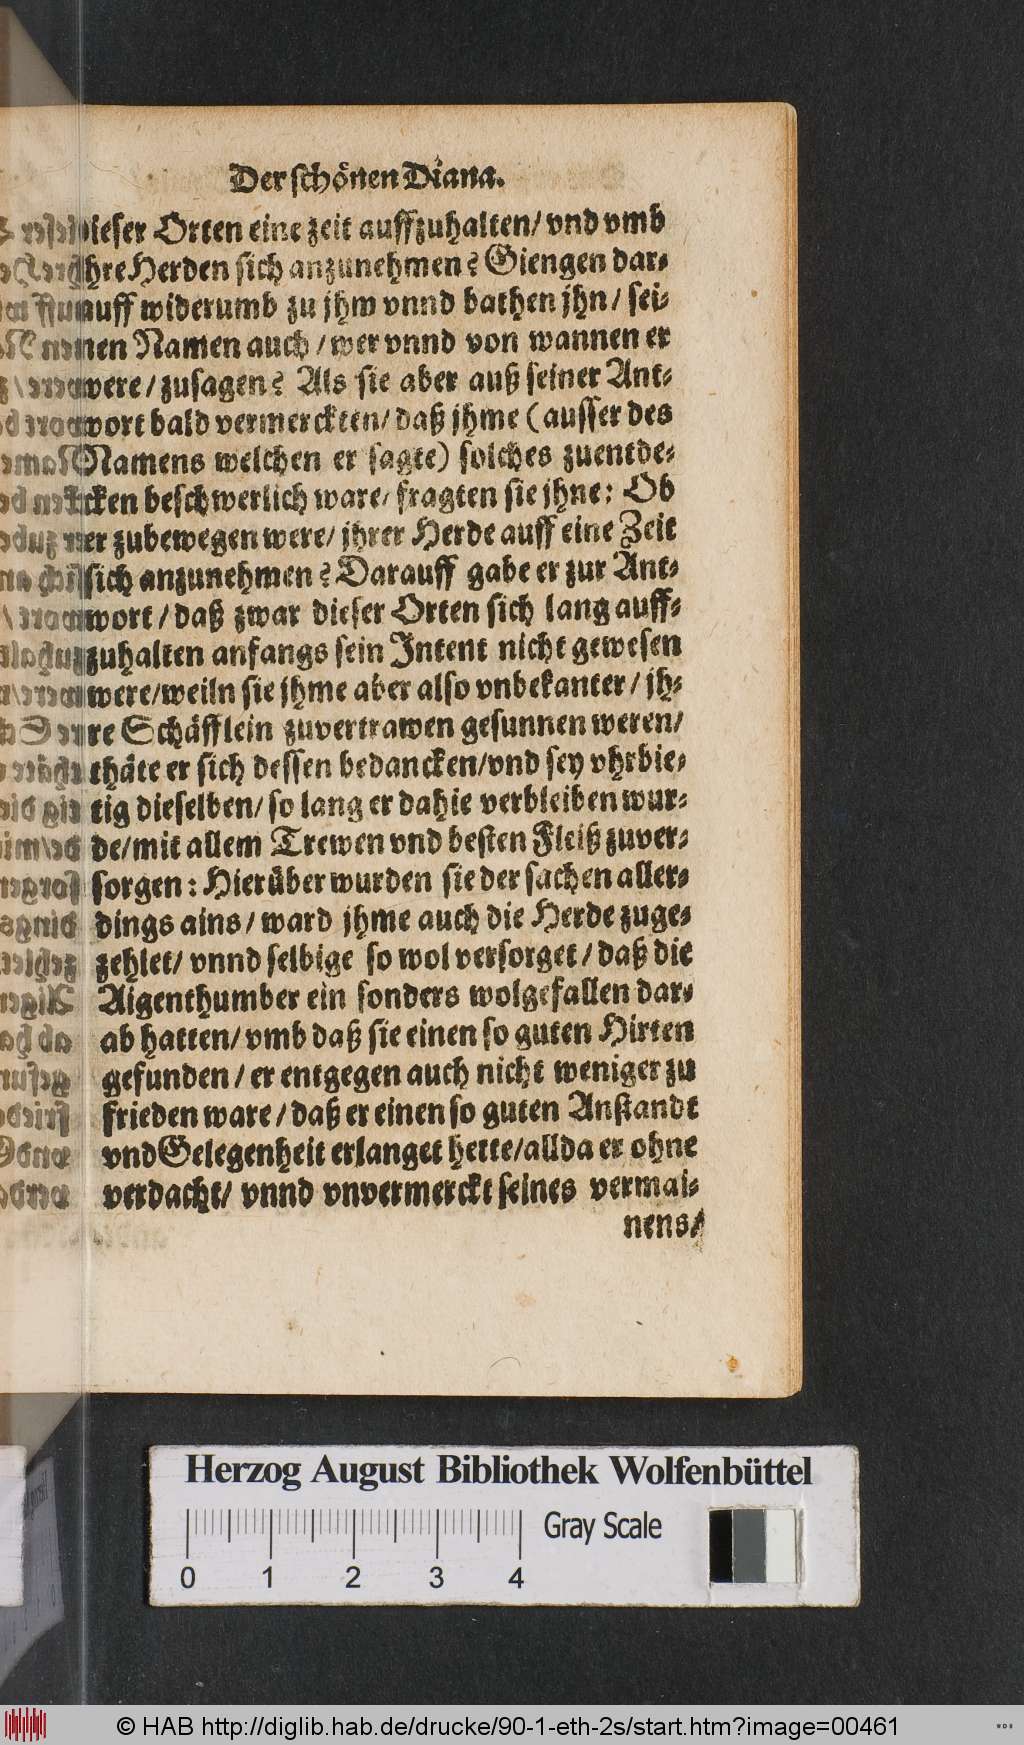 Der schönen Diana.
dieser Orten eine zeit auffzuhalten/ vnd vmb
jhre Herden sich anzunehmen? Giengen dar-
auff widerumb zu jhm vnnd bathen jhn/ sei-
nen Namen auch/ wer vnnd von wannen er
were/ zusagen? Als sie aber auß seiner Ant-
wort bald vermerckten/ daß jhme (ausser des
Namens welchen er sagte) solches zuentde-
cken beschwerlich ware/ fragten sie jhne: Ob
er zubewegen were/ jhrer Herde auff eine Zeit
sich anzunehmen? Darauff gabe er zur Ant-
wort/ daß zwar dieser Orten sich lang auff-
zuhalten anfangs sein Intent nicht gewesen
were/ weiln sie jhme aber also vnbekanter/ jh-
re Schäfflein zuvertrawen gesunnen weren/
thäte er sich dessen bedancken/ vnd sey vhrbie-
tig dieselben/ so lang er dahie verbleiben wur-
de/ mit allem Trewen vnd besten Fleiß zuver-
sorgen: Hierüber wurden sie der sachen aller-
dings ains/ ward jhme auch die Herde zuge-
zehlet/ vnnd selbige so wol versorget/ daß die
Aigenthumber ein sonders wolgefallen dar-
ab hatten/ vmb daß sie einen so guten Hirten
gefunden/ er entgegen auch nicht weniger zu
frieden ware/ daß er einen so guten Anstandt
vnd Gelegenheit erlanget hette/ allda er ohne
verdacht/ vnnd vnvermerckt seines vermai-
nens/
Herzog August Bibliothek Wolfenbüttel
Gray Scale
0 1 2 3 4
© HAB http://diglib.hab.de/drucke/90-1-eth-2s/start.htm?image=00461